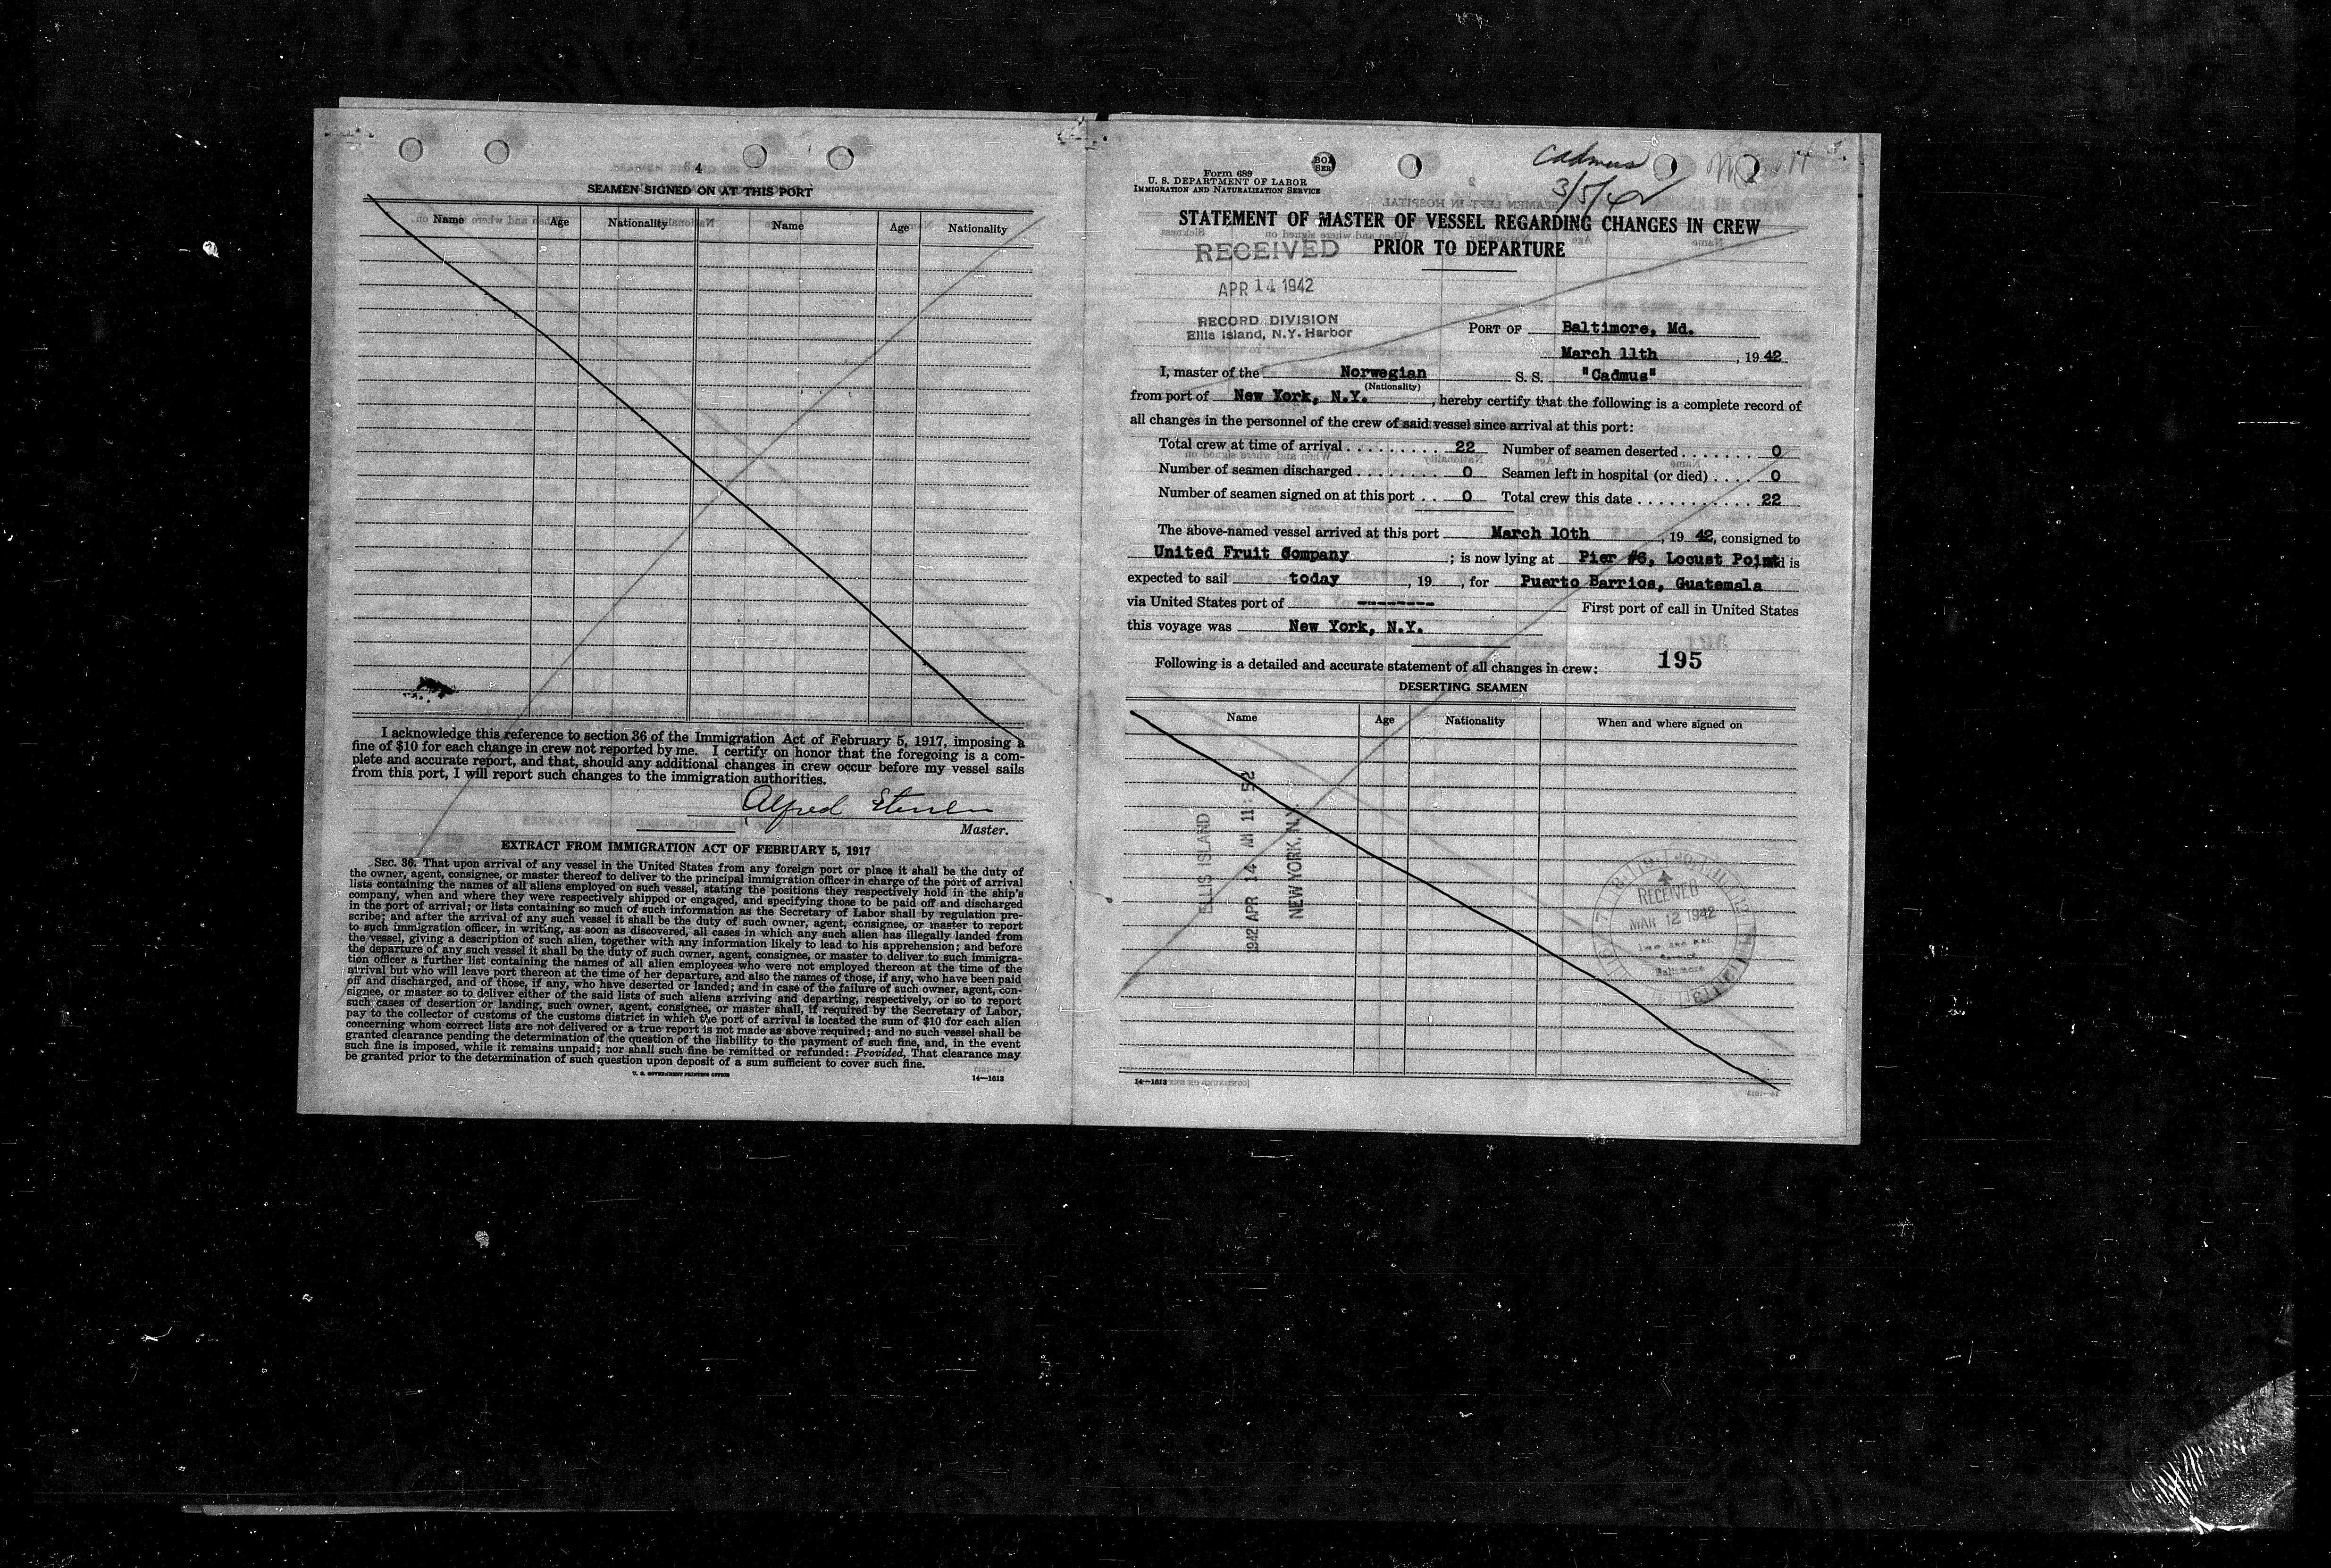 4
SEAMEN SIGNED ON AT THIS PORT
Name Age Nationality Name Age Nationality
I acknowledge this reference to section 36 of the Immigration Act of February 5, 1917, imposing a
fine of $10 for each change in crew not reported by me. I certify on honor that the foregoing is a com-
plete and accurate report, and that, should any additional changes in crew occur before my vessel sails
from this port, I will report such changes to the immigration authorities.
Alfred
Master.
EXTRACT FROM IMMIGRATION ACT OF FEBRUARY 5, 1917
SEC. 36. That upon arrival of any vessel in the United States from any foreign port or place it shall be the duty of
the owner, agent, consignee, or master thereof to deliver to the principal immigration officer in charge of the port of arrival
lists containing the names of all aliens employed on such vessel, stating the positions they respectively hold in the ship's
company, when and where they were respectively shipped or engaged, and specifying those to be paid off and discharged
in the port of arrival; or lists containing so much of such information as the Secretary of Labor shall by regulation pre-
scribe; and after the arrival of any such vessel it shall be the duty of such owner, agent, consignee, or master to report
to such immigration officer, in writing, as soon as discovered, all cases in which any such alien has illegally landed from
the vessel, giving a description of such alien, together with any information likely to lead to his apprehension; and before
the departure of any such vessel it shall be the duty of such owner, agent, consignee, or master to deliver to such immigra-
tion officer a further list containing the names of all alien employees who were not employed thereon at the time of the
arrival but who will leave port thereon at the time of her departure, and also the names of those, if any, who have been paid
off and discharged, and of those, if any, who have deserted or landed; and in case of the failure of such owner, agent, con-
signee, or master so to deliver either of the said lists of such aliens arriving and departing, respectively, or so to report
such cases of desertion or landing, such owner, agent, consignee, or master shall, if required by the Secretary of Labor,
pay to the collector of customs of the customs district in which the port of arrival is located the sum of $10 for each alien
concerning whom correct lists are not delivered or a true report is not made as above required; and no such vessel shall be
granted clearance pending the determination of the question of the liability to the payment of such fine, and, in the event
such fine is imposed, while it remains unpaid; nor shall such fine be remitted or refunded: Provided, That clearance may
be granted prior to the determination of such question upon deposit of a sum sufficient to cover such fine.
U. S. GOVERNMENT PRINTING OFFICE
14—1613
Cadmus
3/5/42
Form 689
U. S. DEPARTMENT OF LABOR
IMMIGRATION AND NATURALIZATION SERVICE
STATEMENT OF MASTER OF VESSEL REGARDING CHANGES IN CREW
PRIOR TO DEPARTURE
RECEIVED
APR 14 1942
RECORD DIVISION
Ellis Island, N.Y. Harbor
PORT OF Baltimore, Md.
March 11th, 1942
I, master of the Norwegian S. S. "Cadmus"
(Nationality)
from port of New York, N.Y., hereby certify that the following is a complete record of
all changes in the personnel of the crew of said vessel since arrival at this port:
Total crew at time of arrival . . . . . . . . . 22 Number of seamen deserted . . . . . . . 0
Number of seamen discharged . . . . . . . . 0 Seamen left in hospital (or died) . . . . 0
Number of seamen signed on at this port . . 0 Total crew this date . . . . . . . . . . 22
The above-named vessel arrived at this port March 10th, 1942, consigned to
United Fruit Company; is now lying at Pier #6, Locust Point and is
expected to sail today, 19 , for Puerto Barrios, Guatemala
via United States port of -------- First port of call in United States
this voyage was New York, N.Y.
195
Following is a detailed and accurate statement of all changes in crew:
DESERTING SEAMEN
Name Age Nationality When and where signed on
ELLIS ISLAND
1942 APR 14 AM 11:52
NEW YORK, N.Y.
RECEIVED
MAR 12 1942
Baltimore
14—1613